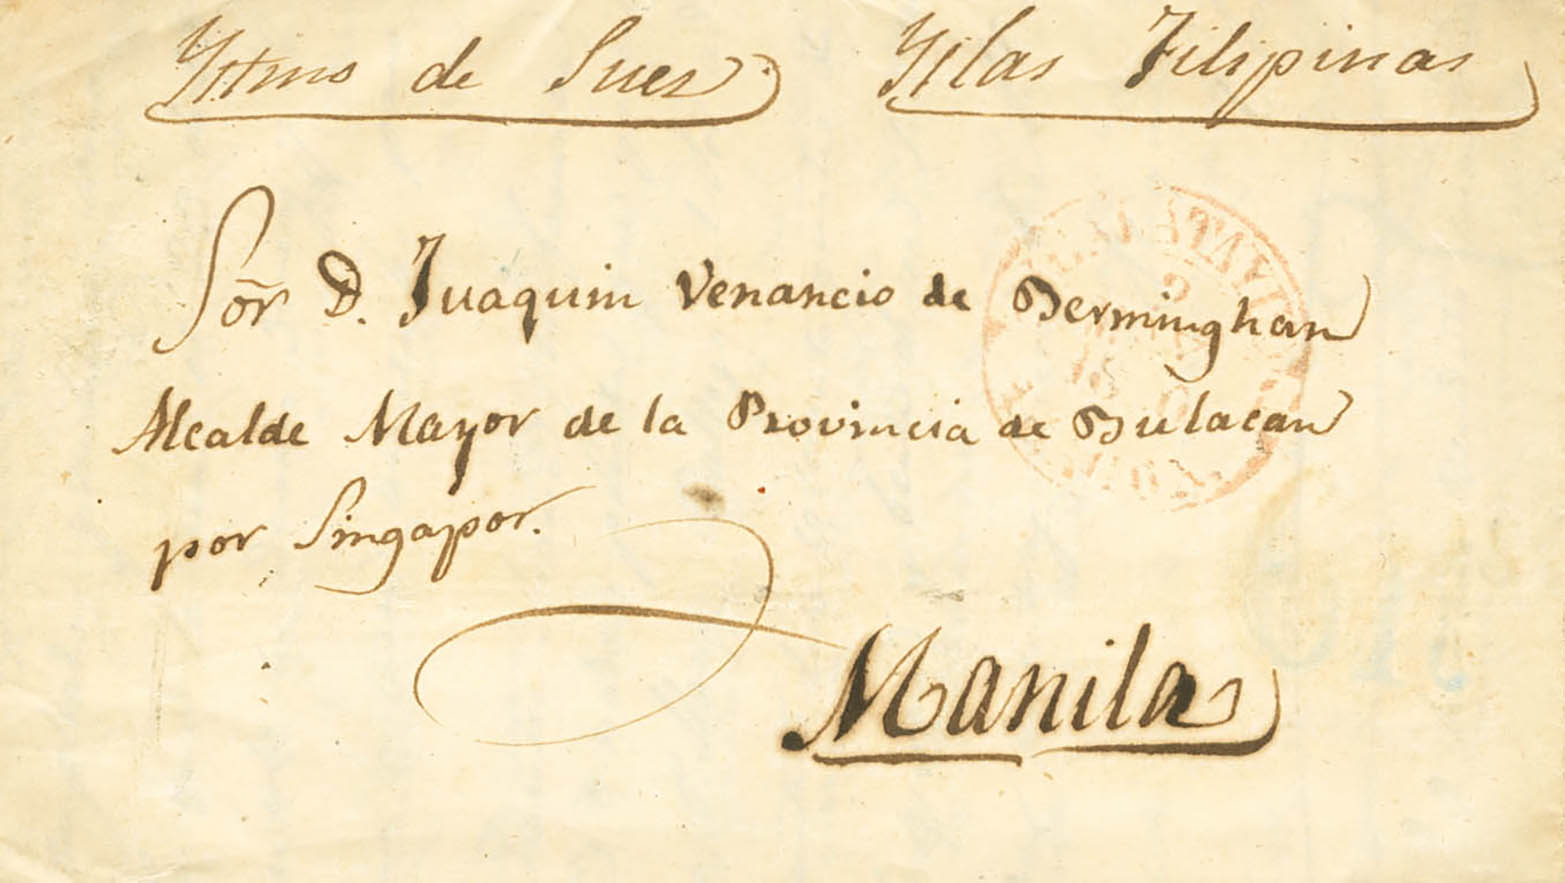 Ystmo de Sues Yslas Filipinas
Sõr D. Juaquin Venancio de Berminghan
Alcalde Mayor de la Provincia de Bulacan
por Singapor.
Manila